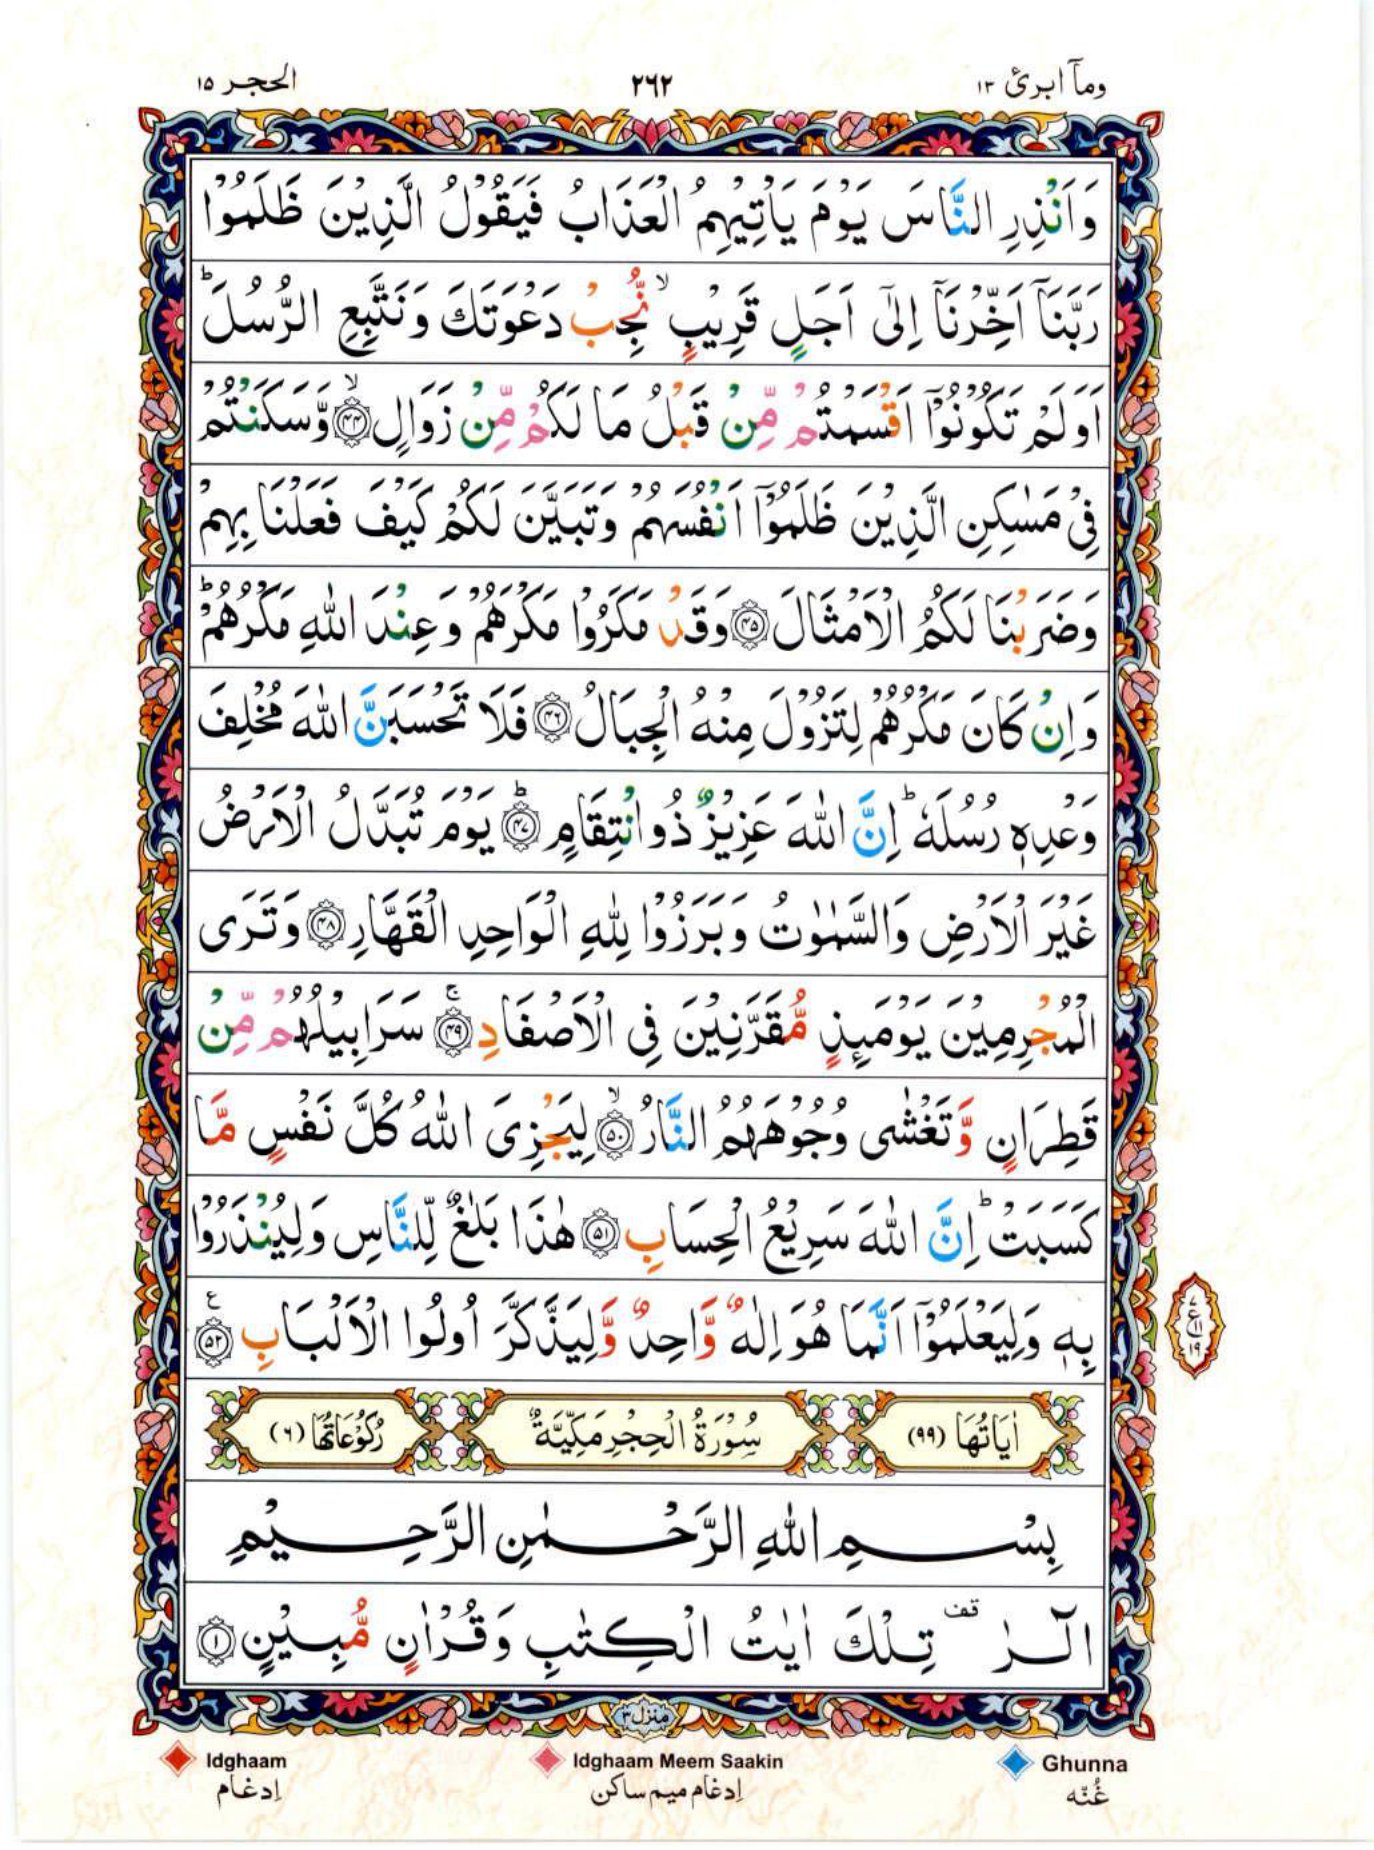 وماۤ ابرئ ١٣
٢٦٢
الحجر ١٥
وَاَنْذِرِ النَّاسَ يَوْمَ يَاْتِيْهِمُ الْعَذَابُ فَيَقُوْلُ الَّذِيْنَ ظَلَمُوْا
رَبَّنَاۤ اَخِّرْنَاۤ اِلٰۤى اَجَلٍ قَرِيْبٍۙ نُّجِبْ دَعْوَتَكَ وَنَتَّبِعِ الرُّسُلَؕ
اَوَلَمْ تَكُوْنُوْۤا اَقْسَمْتُمْ مِّنْ قَبْلُ مَا لَكُمْ مِّنْ زَوَالٍۙ﴿٤٤﴾ وَّسَكَنْتُمْ
فِيْ مَسٰكِنِ الَّذِيْنَ ظَلَمُوْۤا اَنْفُسَهُمْ وَتَبَيَّنَ لَكُمْ كَيْفَ فَعَلْنَا بِهِمْ
وَضَرَبْنَا لَكُمُ الْاَمْثَالَ﴿٤٥﴾ وَقَدْ مَكَرُوْا مَكْرَهُمْ وَعِنْدَ اللّٰهِ مَكْرُهُمْؕ
وَاِنْ كَانَ مَكْرُهُمْ لِتَزُوْلَ مِنْهُ الْجِبَالُ﴿٤٦﴾ فَلَا تَحْسَبَنَّ اللّٰهَ مُخْلِفَ
وَعْدِهٖ رُسُلَهٗؕ اِنَّ اللّٰهَ عَزِيْزٌ ذُو انْتِقَامٍؕ﴿٤٧﴾ يَوْمَ تُبَدَّلُ الْاَرْضُ
غَيْرَ الْاَرْضِ وَالسَّمٰوٰتُ وَبَرَزُوْا لِلّٰهِ الْوَاحِدِ الْقَهَّارِ﴿٤٨﴾ وَتَرَى
الْمُجْرِمِيْنَ يَوْمَئِذٍ مُّقَرَّنِيْنَ فِى الْاَصْفَادِۚ﴿٤٩﴾ سَرَابِيْلُهُمْ مِّنْ
قَطِرَانٍ وَّتَغْشٰى وُجُوْهَهُمُ النَّارُۙ﴿٥٠﴾ لِيَجْزِىَ اللّٰهُ كُلَّ نَفْسٍ مَّا
كَسَبَتْؕ اِنَّ اللّٰهَ سَرِيْعُ الْحِسَابِ﴿٥١﴾ هٰذَا بَلٰغٌ لِّلنَّاسِ وَلِيُنْذَرُوْا
بِهٖ وَلِيَعْلَمُوْۤا اَنَّمَا هُوَ اِلٰهٌ وَّاحِدٌ وَّلِيَذَّكَّرَ اُولُوا الْاَلْبَابِ﴿٥٢﴾ ع
٧
ع ١١
١٩
اٰيَاتُهَا (٩٩) سُوْرَةُ الْحِجْرِ مَكِّيَّةٌ رُكُوْعَاتُهَا (٦)
بِسْمِ اللّٰهِ الرَّحْمٰنِ الرَّحِيْمِ
الٓرٰ قف تِلْكَ اٰيٰتُ الْكِتٰبِ وَقُرْاٰنٍ مُّبِيْنٍ﴿١﴾
منزل ٣
Idghaam Idghaam Meem Saakin Ghunna
إدغام إدغام ميم ساكن غُنّه